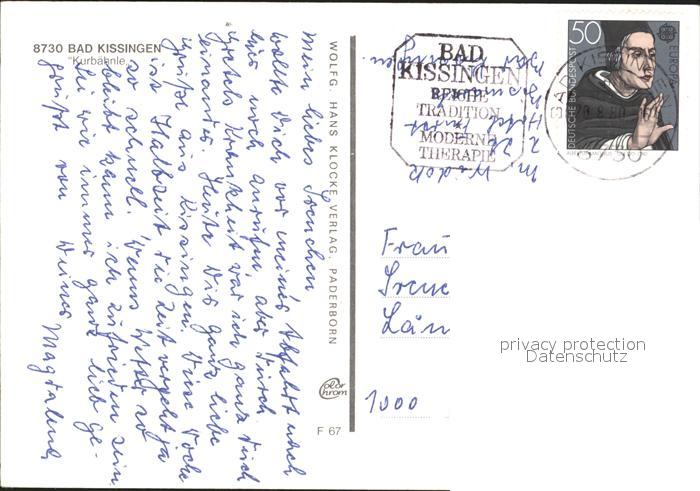 8730 BAD KISSINGEN
"Kurbähnle"
Mein liebes Irenchen
wollte Dich vor meiner Abfahrt noch
mal noch anrufen, aber durch
Krankheit war ich ganz durch
einander. Heute Dir ganz liebe
Grüße aus Kissingen. Diese Woche
ist Halbzeit die Zeit vergeht ja
so schnell. Wenns Wetter so
bleibt kann ich zufrieden sein.
Sei wie immer ganz lieb ge-
grüßt von Deiner Magdalena
WOLFG. HANS KLOCKE VERLAG, PADERBORN
Color
Chrom
F 67
BAD
KISSINGEN
REICHE
TRADITION
MODERNE
THERAPIE
50
DEUTSCHE BUNDESPOST
EUROPA
8730
Frau
Irene
Län
1000
privacy protection
Datenschutz